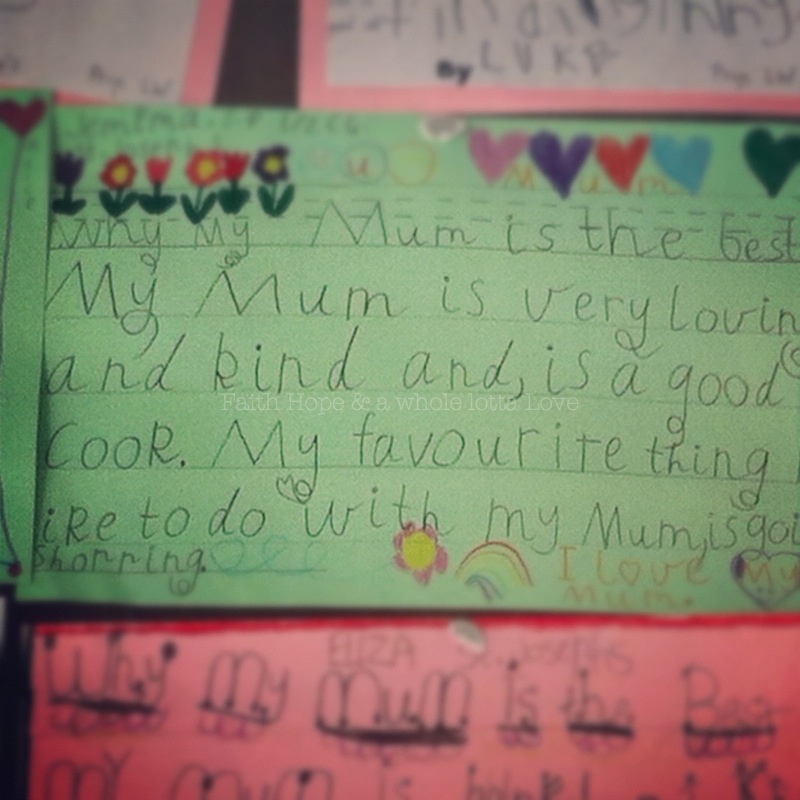 By LUKE
Mum
Why My Mum is the best
My Mum is very lovin
and kind and, is a good
Cook. My favourite thing
ike to do with my Mum, is goi
Shopping.
I love My
Mum.
Faith Hope & a whole lotta Love
ELIZA St. Josephs
Why My Mum is the Best
My Mum is